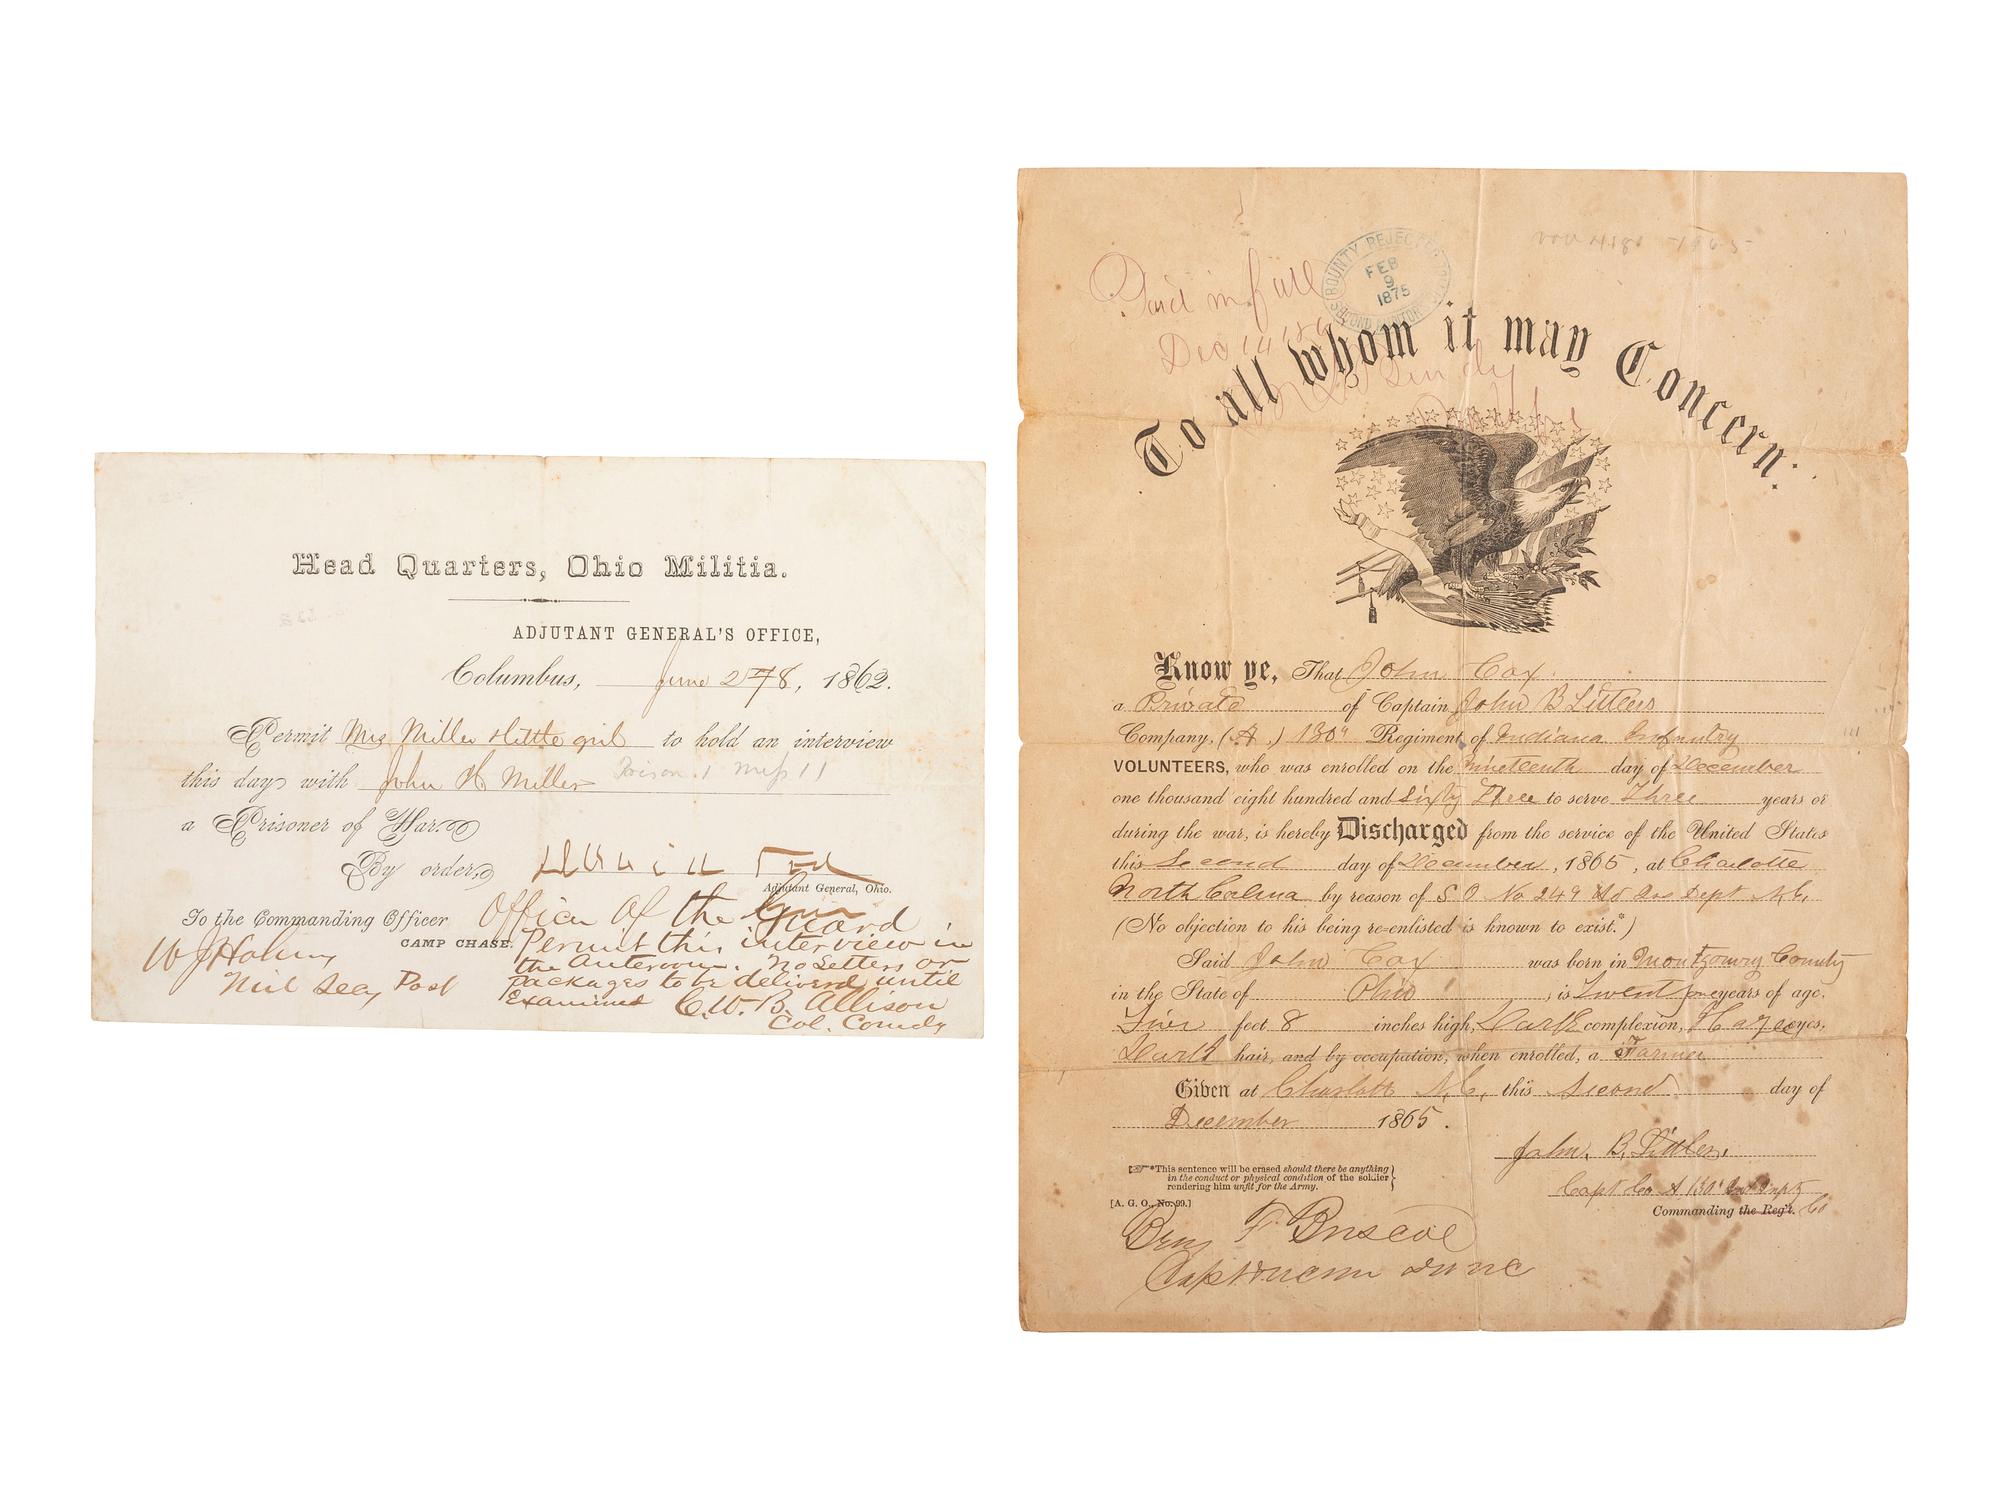 Head Quarters, Ohio Militia.
ADJUTANT GENERAL'S OFFICE,
Columbus, June 28, 1862.
Permit Mrs Miller & little girl to hold an interview
this day with John H Miller Prison 1 Mess 11
a Prisoner of War.
By order,
Adjutant General, Ohio.
To the Commanding Officer
CAMP CHASE.
Officer Of the Guard
Permit this interview in
the Anteroom. No Letters or
packages to be delivered until
Examined C. W. B. Allison
Col. Comdg
Post
Paid in full
Dec 14
BOUNTY REJECTED
FEB
9
1875
SECOND AUDITOR
To all whom it may Concern:
Know ye, That John Cox
a Private of Captain John B Littlers
Company, (A,) 130th Regiment of Indiana Infantry
VOLUNTEERS, who was enrolled on the Nineteenth day of December
one thousand eight hundred and Sixty Three to serve Three years or
during the war, is hereby Discharged from the service of the United States
this Second day of December, 1865, at Charlotte
North Colina by reason of S O No 249 Hd Qrs Dept N.C.
(No objection to his being re-enlisted is known to exist.*)
Said John Cox was born in Montgomry County
in the State of Ohio, is years of age,
Five feet 8 inches high, Dark complexion, Hazel eyes,
Dark hair, and by occupation, when enrolled, a Farmer
Given at Charlott N.C, this Second day of
December 1865.
John. B. Littler,
Capt Co A 130th Ind Infty
Commanding the Reg't. Co
*This sentence will be erased should there be anything
in the conduct or physical condition of the soldier
rendering him unfit for the Army.
[A. G. O., No. 99.]
Benj F Briscoe
Capt